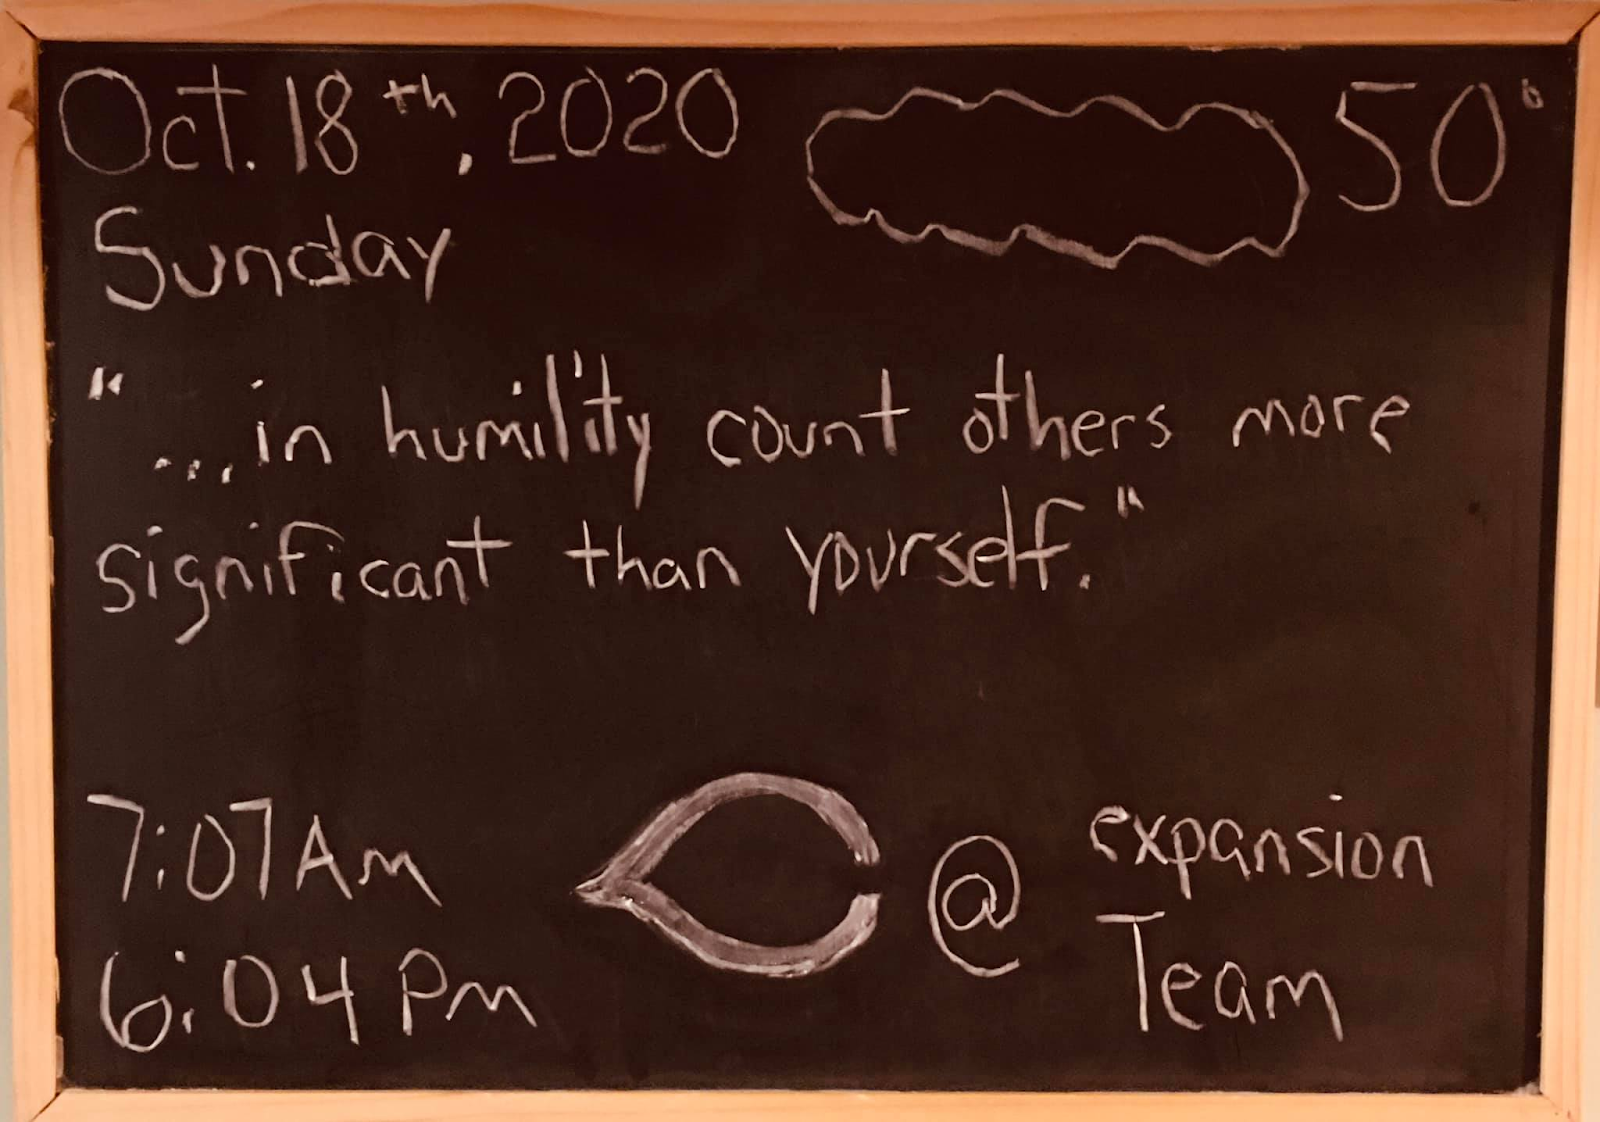 Oct. 18th, 2020
50°
Sunday
"...in humility count others more
significant than yourself."
7:07 AM
6:04 PM
C @ expansion
Team